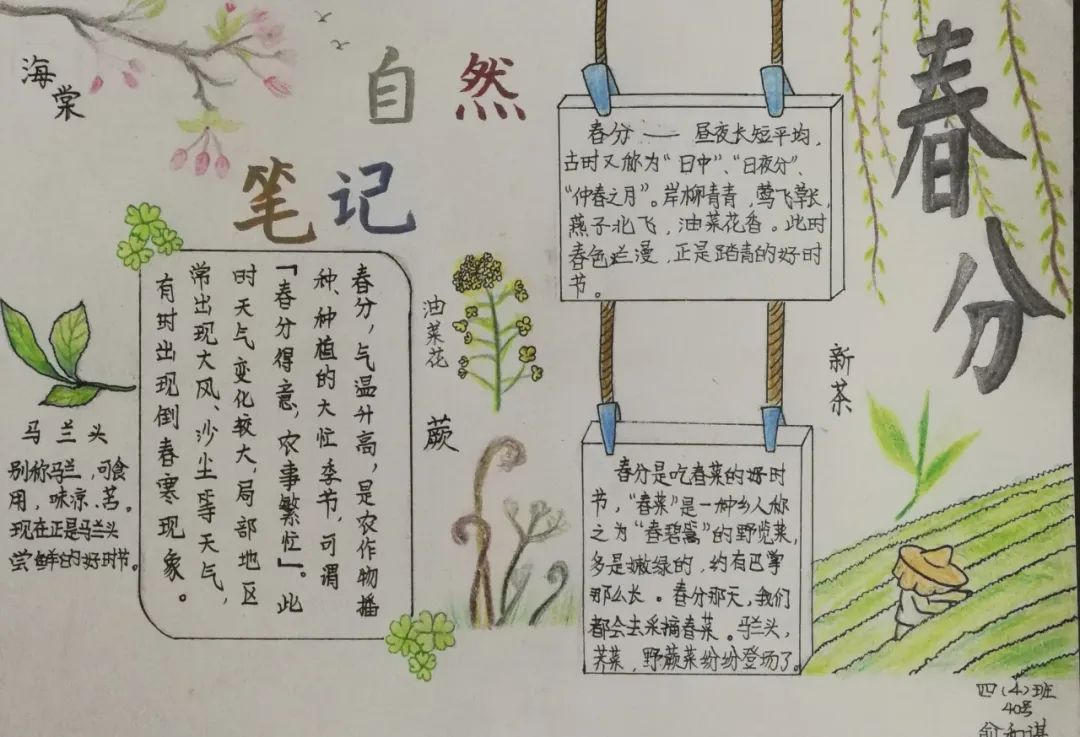 海棠
自然
笔记
春分
春分——昼夜长短平均，
古时又称为“日中”、“日夜分”、
“仲春之月”。岸柳青青，莺飞草长，
燕子北飞，油菜花香。此时
春色烂漫，正是踏青的好时
节。
春分，气温升高，是农作物播
种、种植的大忙季节，可谓
「春分得意，农事繁忙」。此
时天气变化较大，局部地区
常出现大风、沙尘等天气，
有时出现倒春寒现象。
油菜花
蕨
马兰头
别称马兰，可食
用，味凉、苦。
现在正是马兰头
尝鲜的好时节。
春分是吃春菜的好时
节，“春菜”是一种乡人称
之为“春碧蒿”的野苋菜，
多是嫩绿的，约有巴掌
那么长。春分那天，我们
都会去采摘春菜。马兰头，
荠菜，野蕨菜纷纷登场了。
新茶
四（4）班
40号
俞和谋